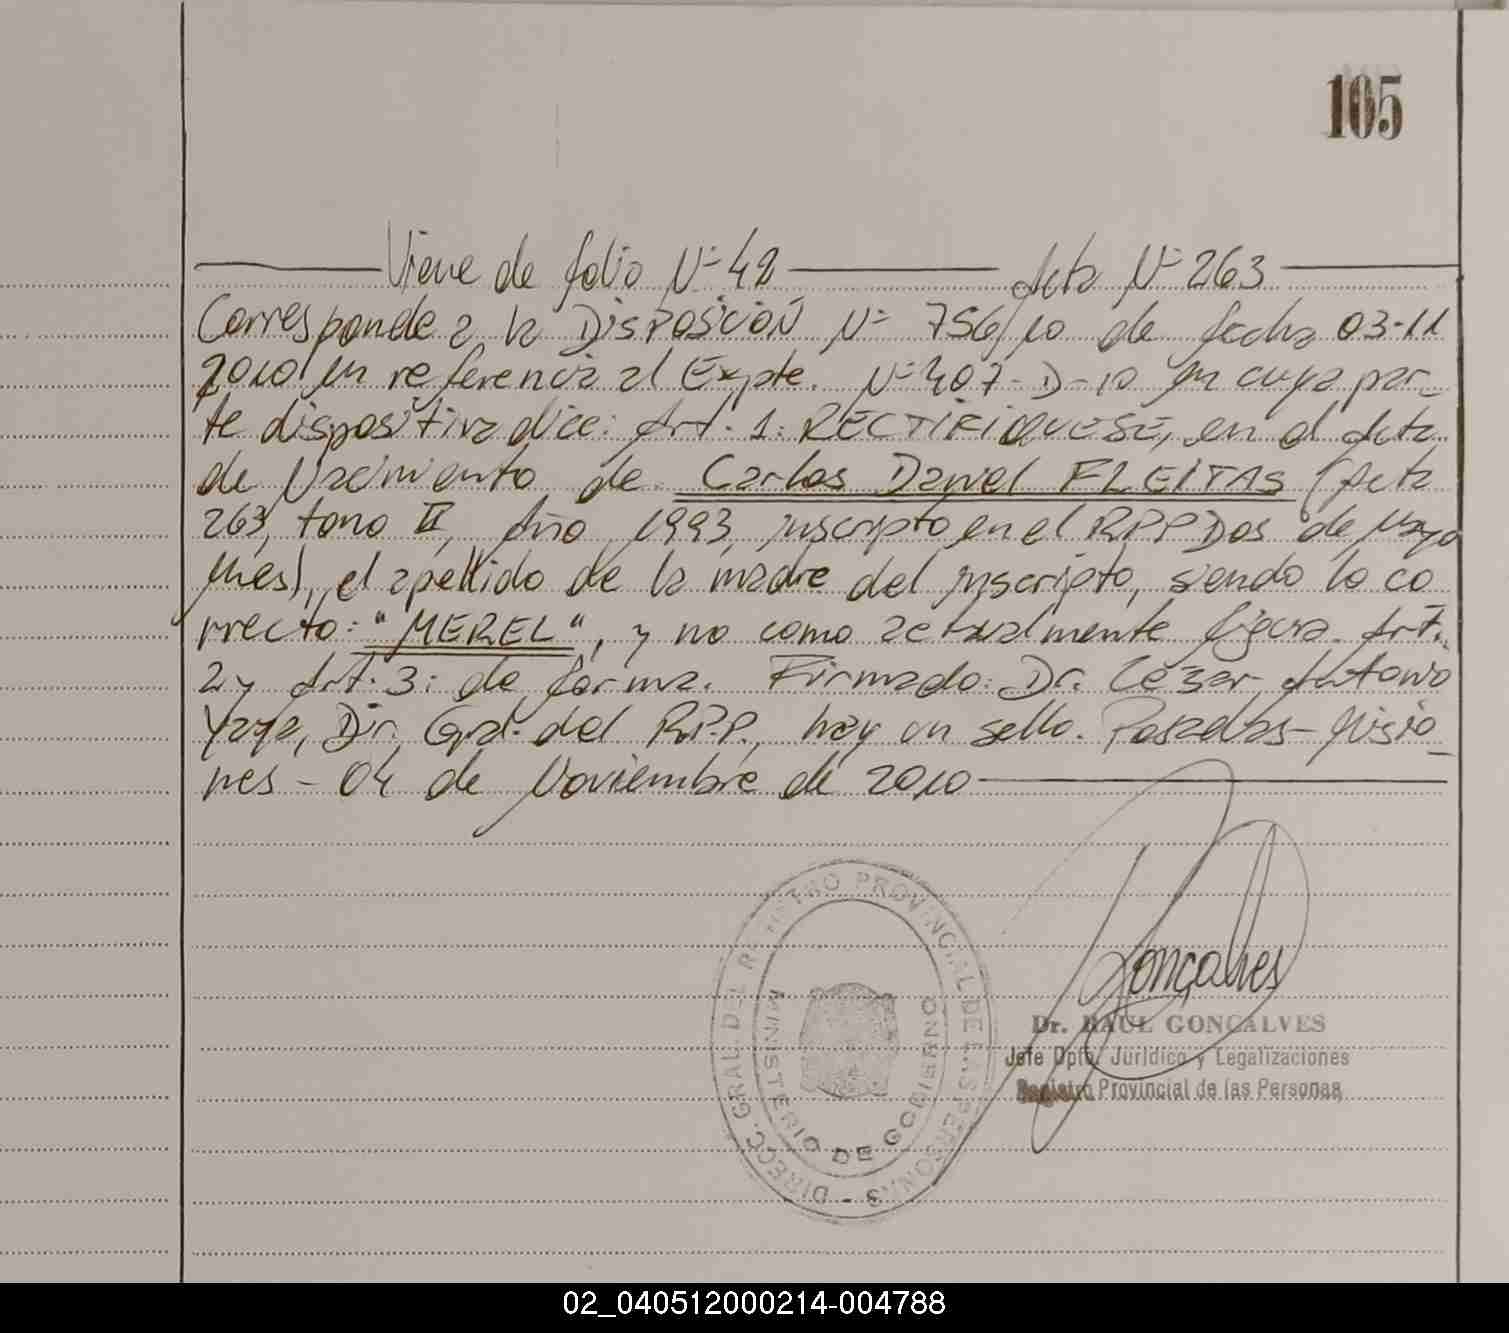 105
Viene de folio Nº 42 Acta Nº 263
Corresponde a la DISPOSICIÓN Nº 756/10 de fecha 03-11
2010 en referencia al Expte. Nº 407-D-10 en cuya par_
te dispositiva dice: Art. 1: RECTIFIQUESE, en el Acta
de Nacimiento de Carlos Daniel FLEITAS (Acta
263, tomo II, Año 1993, inscripto en el RPP Dos de Mayo
Mnes), el apellido de la madre del inscripto, siendo lo co
rrecto: "MEREL", y no como actualmente figura. Art.
2 y Art. 3: de forma. Firmado: Dr. César Antonio
Yaya, Dir. Gral. del R.P.P., hay un sello. Posadas - Misio_
nes - 04 de Noviembre de 2010
Gonçalves
DIRECC. GRAL. DEL REGISTRO PROVINCIAL DE LAS PERSONAS -
MINISTERIO DE GOBIERNO
Dr. RAUL GONÇALVES
Jefe Dpto. Jurídico y Legalizaciones
Registro Provincial de las Personas
02_040512000214-004788